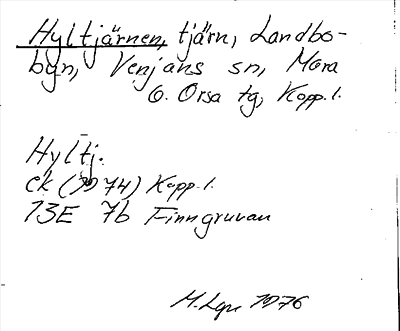 Hyltjärnen, tjärn, Landbo-
byn, Venjans sn, Mora
o. Orsa tg, Kopp. l.
Hyltj.
ek (1974) Kopp. l.
13E 7b Finngruvan
1976